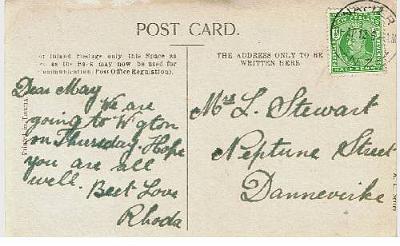 POST CARD.
of Inland Postage only this Space as
as the Back may now be used for
Communication. (Post Office Regulation).
THE ADDRESS ONLY TO BE
WRITTEN HERE
NAPIER
Dear May
We are
going to W'gton
on Thursday. Hope
you are all
well. Best Love
Rhoda
Mrs L. Stewart
Neptune Street
Dannevirke